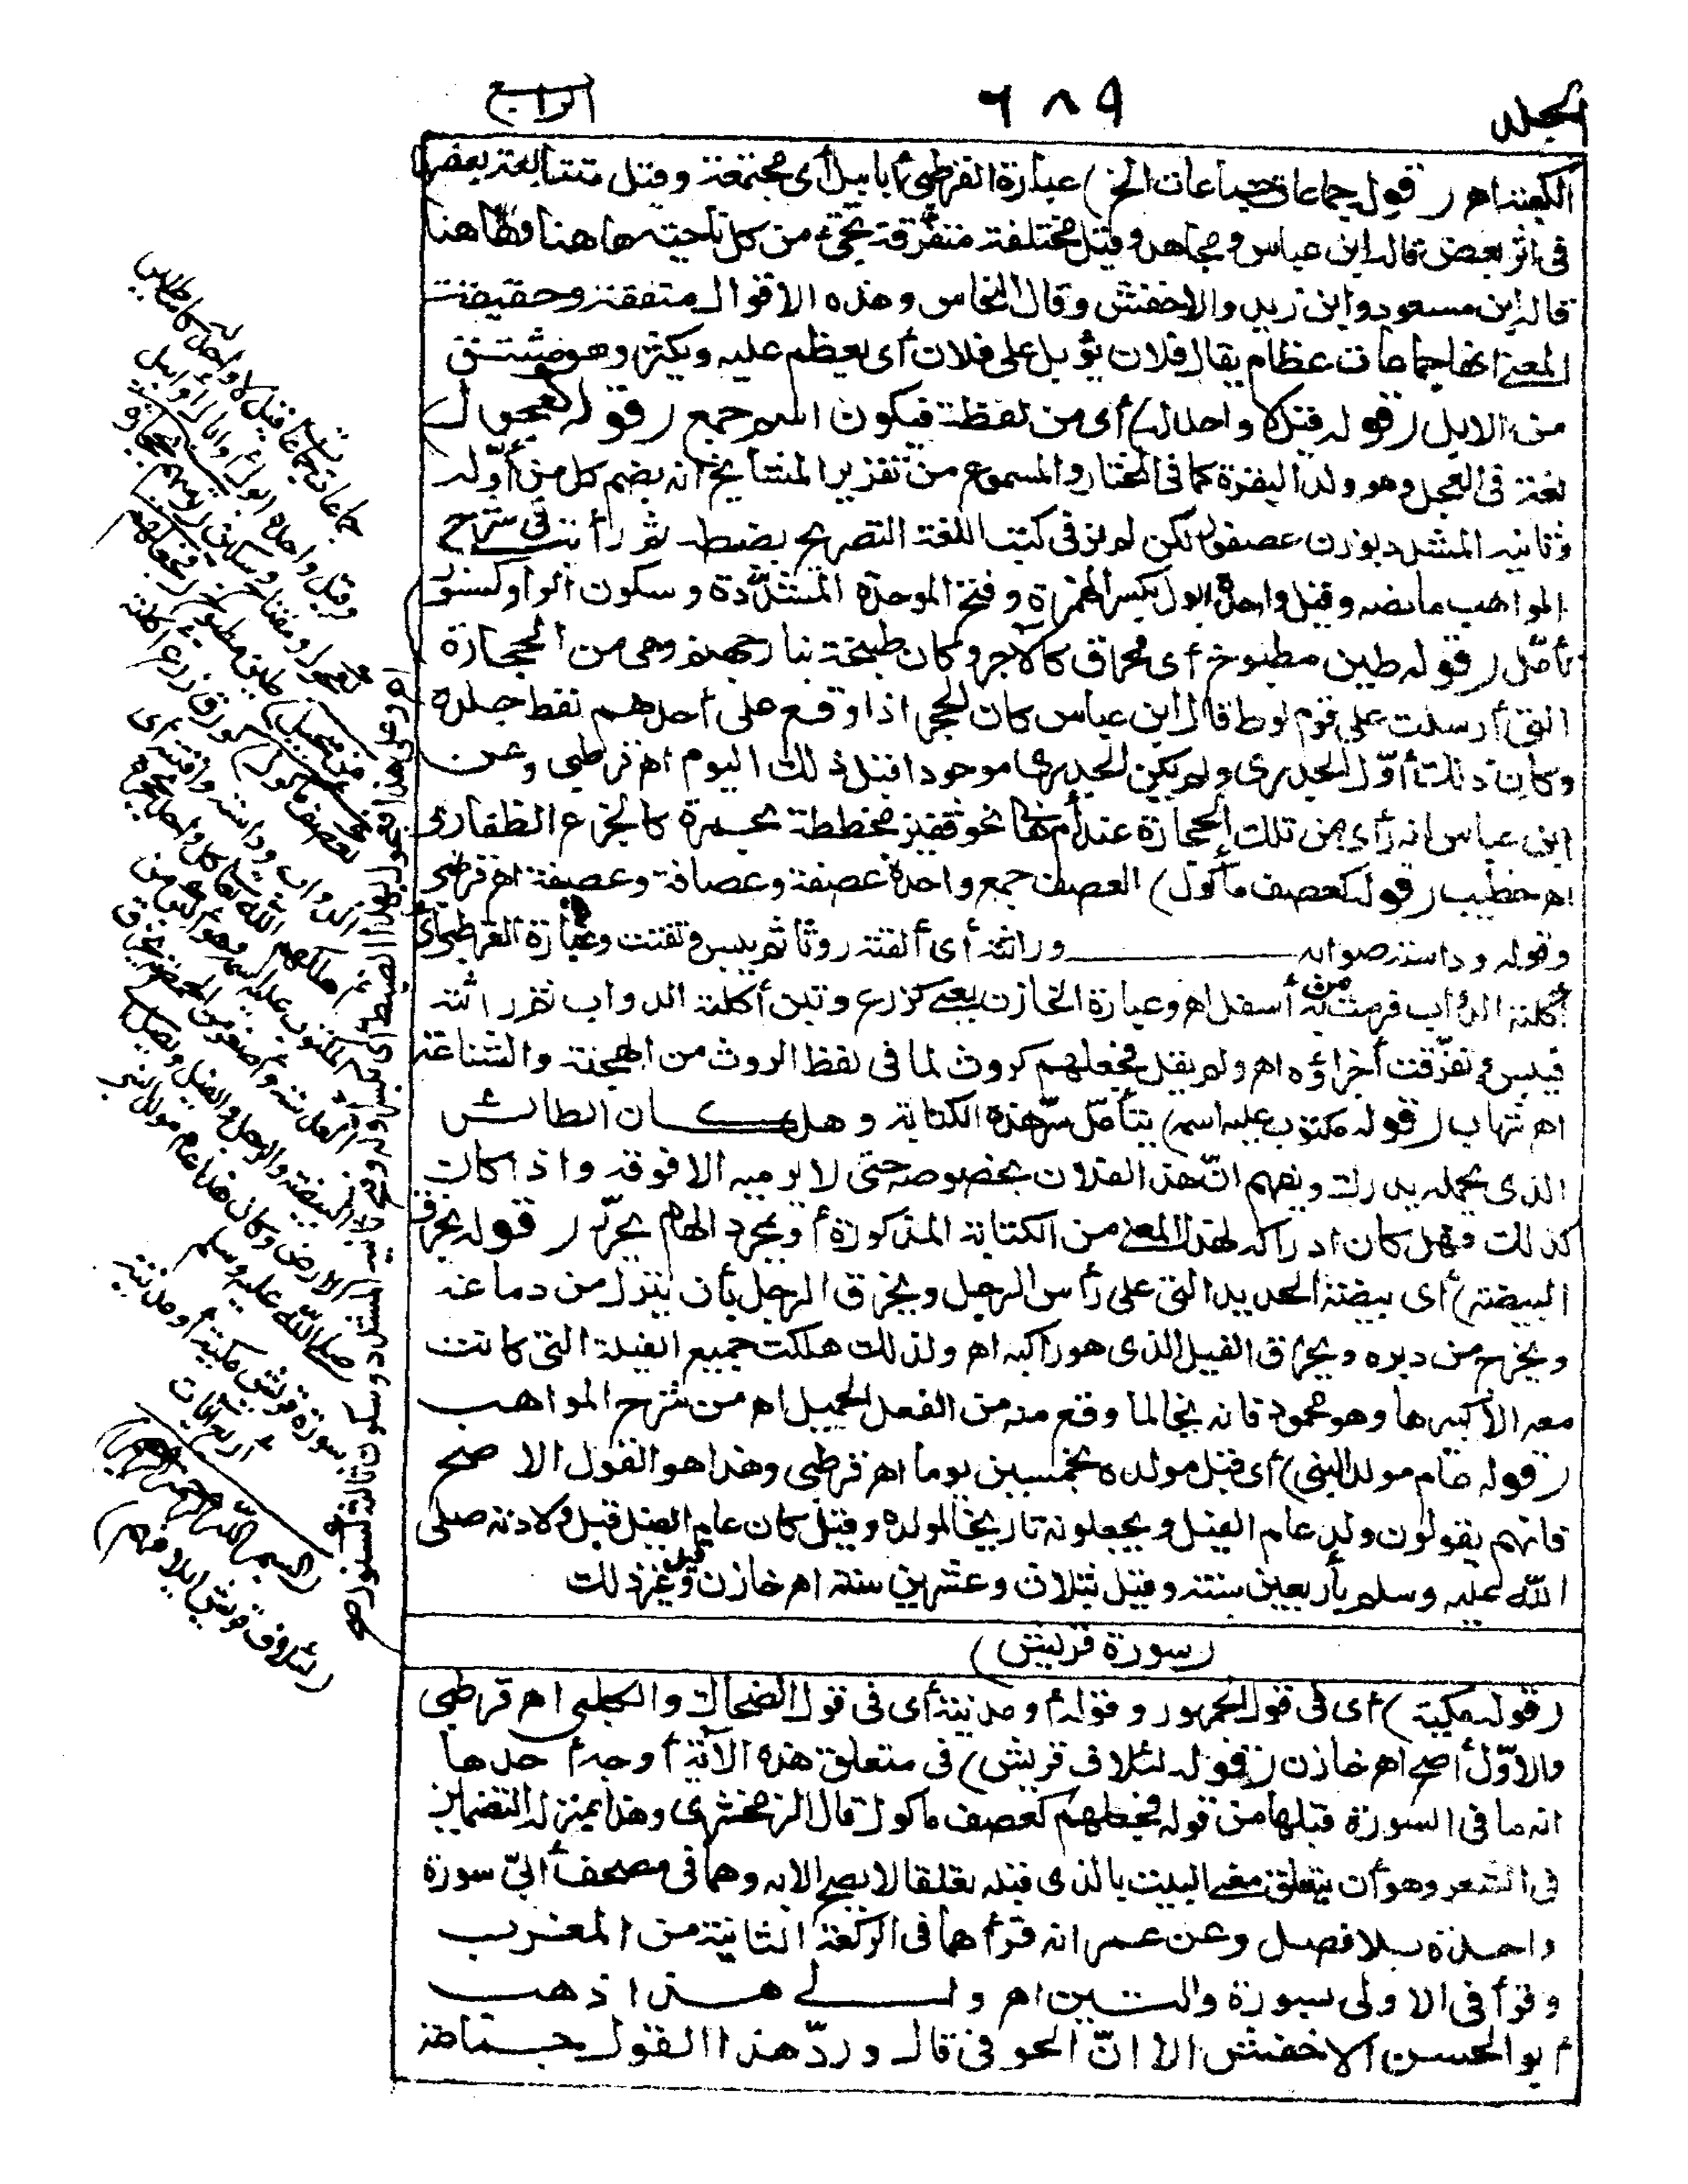 المجلد ٦٨٩ الرابع
الكعبة اه (قوله جماعات جماعات الخ) عبارة القرطبي أبابيل أى مجتمعة وقيل متتابعة بعضها
فى اثر بعض قاله ابن عباس ومجاهد وقيل مختلفة متفرقة تجىء من كل ناحية هاهنا وهاهنا
قاله ابن مسعود وابن زيد والاخفش وقال النحاس وهذه الاقوال متفقة وحقيقة
المعنى انها جماعات عظام يقال فلان يؤبل على فلان أى يعظم عليه ويكثر وهو مشتق
من الابل (قوله قيل لا واحد له) أى من لفظه فيكون اسم جمع (قوله كعجول)
لغة فى العجل وهو ولد البقرة كما فى المختار والمسموع من تقرير المشايخ انه بضم كل من أوّله
وثانيه المشدد بوزن عصفور لكن لم نر فى كتب اللغة التصريح بضبطه ثم رأيت فى شرح
المواهب ما نصه وقيل واحده ابول بكسر الهمزة وفتح الموحدة المشدّدة وسكون الواو كسنور
تأمّل (قوله طين مطبوخ) أى محراق كالآجر وكان طبخه بنار جهنم وهى من الحجارة
التى أرسلت على قوم لوط قال ابن عباس كان الحجر اذا وقع على أحدهم نفط جلده
وكان ذلك أوّل الجدرى ولم يكن الجدرى موجودا قبل ذلك اليوم اه قرطبى وعن
ابن عباس انه رأى من تلك الحجارة عند أم هانئ نحو قفيز مخططة بحمرة كالجزع الظفارى
اه خطيب (قوله كعصف مأكول) العصف جمع واحده عصفة وعصافة وعصيفة اه قرطبى
وقوله وداسته صوابه وراثته أى ألقته روثا ثم يبس وتفتت وعبارة القرطبى أى
أكلته الدواب فرمت به من أسفل اه وعبارة الخازن يعنى كزرع وتبن أكلته الدواب ثم راثته
فيبس وتفرّقت أجزاؤه اه ولم يقل فجعلهم كروث لما فى لفظ الروث من الهجنة والشناعة
اه شهاب (قوله مكتوب عليه اسمه) يتأمّل سرّ هذه الكتابة وهل كان الطائش
الذى يحمله يدرك ويفهم انّ هذا لفلان بخصوصه حتى لا يرميه الا فوقه واذا كان
كذلك فهل كان ادراكه لهذا المعنى من الكتابة المذكورة أو بمجرد الهام يحرّر (قوله يخرق
البيضة) أى بيضة الحديد التى على رأس الرجل ويخرق الرجل بأن ينزل من دماغه
ويخرج من دبره ويخرق الفيل الذى هو راكبه اه ولذلك هلكت جميع الفيلة التى كانت
معه الا كبيرها وهو محمود فانه نجا لما وقع منه من الفعل الجميل اه من شرح المواهب
(قوله عام مولد النبى) أى قبل مولده بخمسين يوما اه قرطبى وهذا هو القول الاصح
فانهم يقولون ولد عام الفيل ويجعلونه تاريخا لمولده وقيل كان عام الفيل قبل ولادته صلى
اللّه عليه وسلم بأربعين سنة وقيل بثلاث وعشرين سنة اه خازن وقيل غير ذلك
(سورة قريش)
(قوله مكية) أى فى قول الجمهور وقوله أو مدنية أى فى قول الضحاك والكلبى اه قرطبى
والاوّل أصح اه خازن (قوله لئلاف قريش) فى متعلق هذه الآية أوجه أحدها
انه ما فى السورة قبلها من قوله فجعلهم كعصف مأكول قال الزمخشرى وهذا بمنزلة التضمين
فى الشعر وهو أن يتعلق معنى البيت بالذى قبله تعلقا لا يصح الا به وهما فى مصحف أبىّ سورة
واحدة بلا فصل وعن عمر انه قرأهما فى الركعة الثانية من المغرب
وقرأ فى الاولى سورة والتين اه والى هذا ذهب
أبو الحسن الاخفش الا انّ الحوفى قال وردّ هذا القول جماعة
جماعات جماعات قيل لا واحد له كاساطير
وقيل واحده ابول أو ابال أو ابيل
كعجول ومفتاح وسكين (ترميهم بحجارة
من سجيل) طين مطبوخ (فجعلهم
كعصف مأكول) كورق زرع اكلته
الدواب وداسته وافنته أى
اهلكهم اللّه تعالى كل واحد بحجره
المكتوب عليه اسمه وهو أكبر من
العدسة وأصغر من الحمصة يخرق
البيضة والرجل والفيل ويصل
الارض وكان هذا عام مولد النبى
صلى اللّه عليه وسلم
سورة قريش مكية أو مدنية
أربع آيات
(بسم اللّه الرحمن الرحيم
لئلاف قريش ايلافهم)